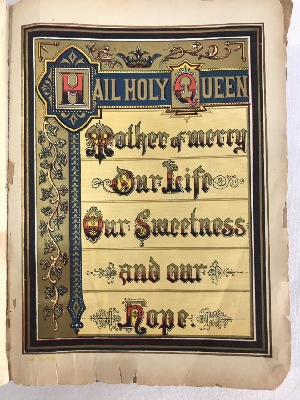 HAIL HOLY QUEEN
Mother of mercy
Our Life
Our Sweetness
and our
Hope.